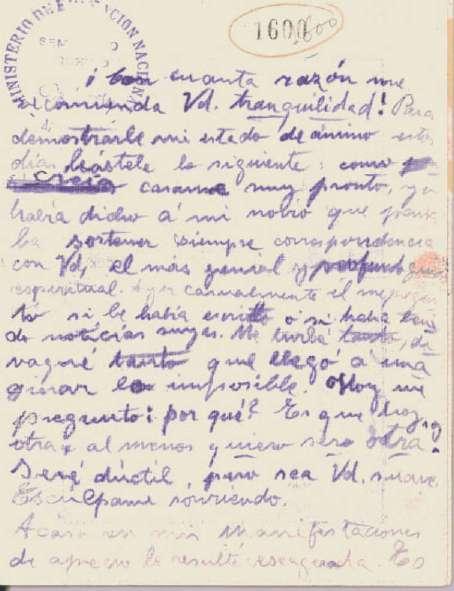 MINISTERIO DE EDUCACION NACIONAL
1600
¡Con cuanta razón me
recomienda Vd. tranquilidad! Para
demostrarle mi estado de ánimo estos
días, básstele lo siguiente: como
creía casarme muy pronto, ya
había dicho á mi novio que
sostener siempre correspondencia
con Vd, el más genial y profundo guía
espiritual. Ayer casualmente él me pregun
tó si le había escrito o si había
do noticias suyas. Me turbé tanto, di
vagué tanto que llegó a
ginar lo imposible. Hoy me
pregunto: ¿por qué? Es que hoy soy
otra, al menos quiero ser otra.
Seré dúctil, pero sea Vd. suave.
Escúlpame sonriendo.
Acaso en mis manifestaciones
de aprecio le resulté exagerada. Es